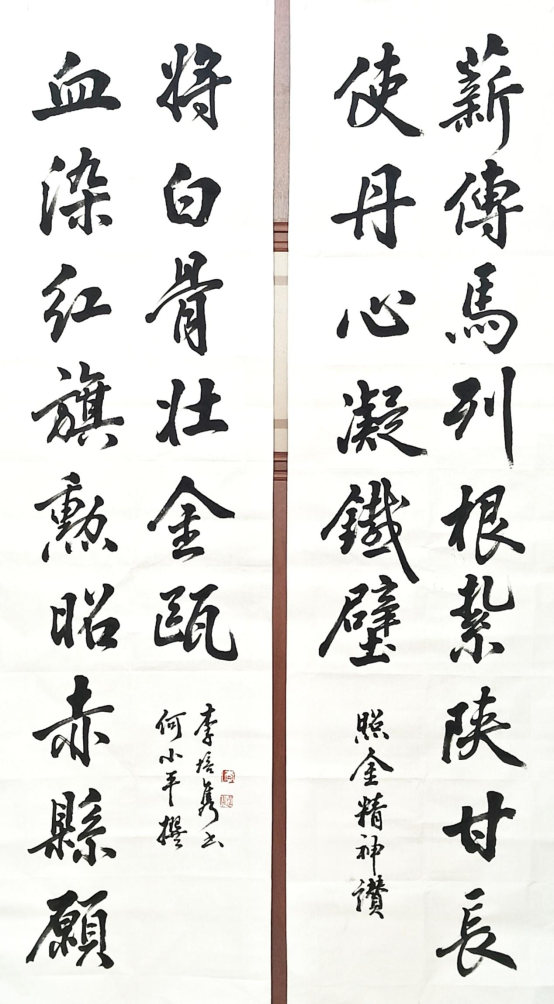 薪傳馬列根紮陝甘長
使丹心凝鐵壁
照金精神讚
血染紅旗勳昭赤縣願
將白骨壯金甌
何小平撰
李培雋书